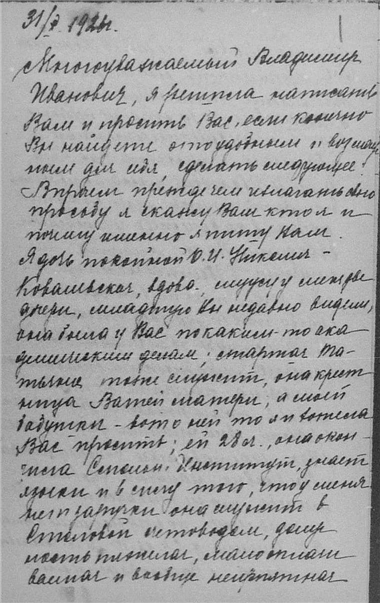 31/X 192 г.
Многоуважаемый Владимир
Иванович, я решила написать
Вам и просить Вас, если конечно
Вы найдете это удобным и возмож
ным для себя, сделать следующее:
Впрочем прежде чем излагать свою
просьбу я скажу Вам кто я и
почему именно я пишу Вам.
Я дочь покойной О.И. Никошич-
Ковальской, вдова. служу, у меня две
дочери, младшую Вы недавно видели,
она была у Вас по каким-то ака
демическим делам; старшая Та-
тьяна тоже служит, она крест
ница Вашей матери, а моей
бабушки - вот о ней то я и хотела
Вас просить; ей 28 л., она окон-
чила Смольн. Институт, знает
языки и в силу того, что у меня
нет она служит в
Столовой счетоводом, долж
ность тяжелая, мало оплачи
ваемая и вообще неприятная